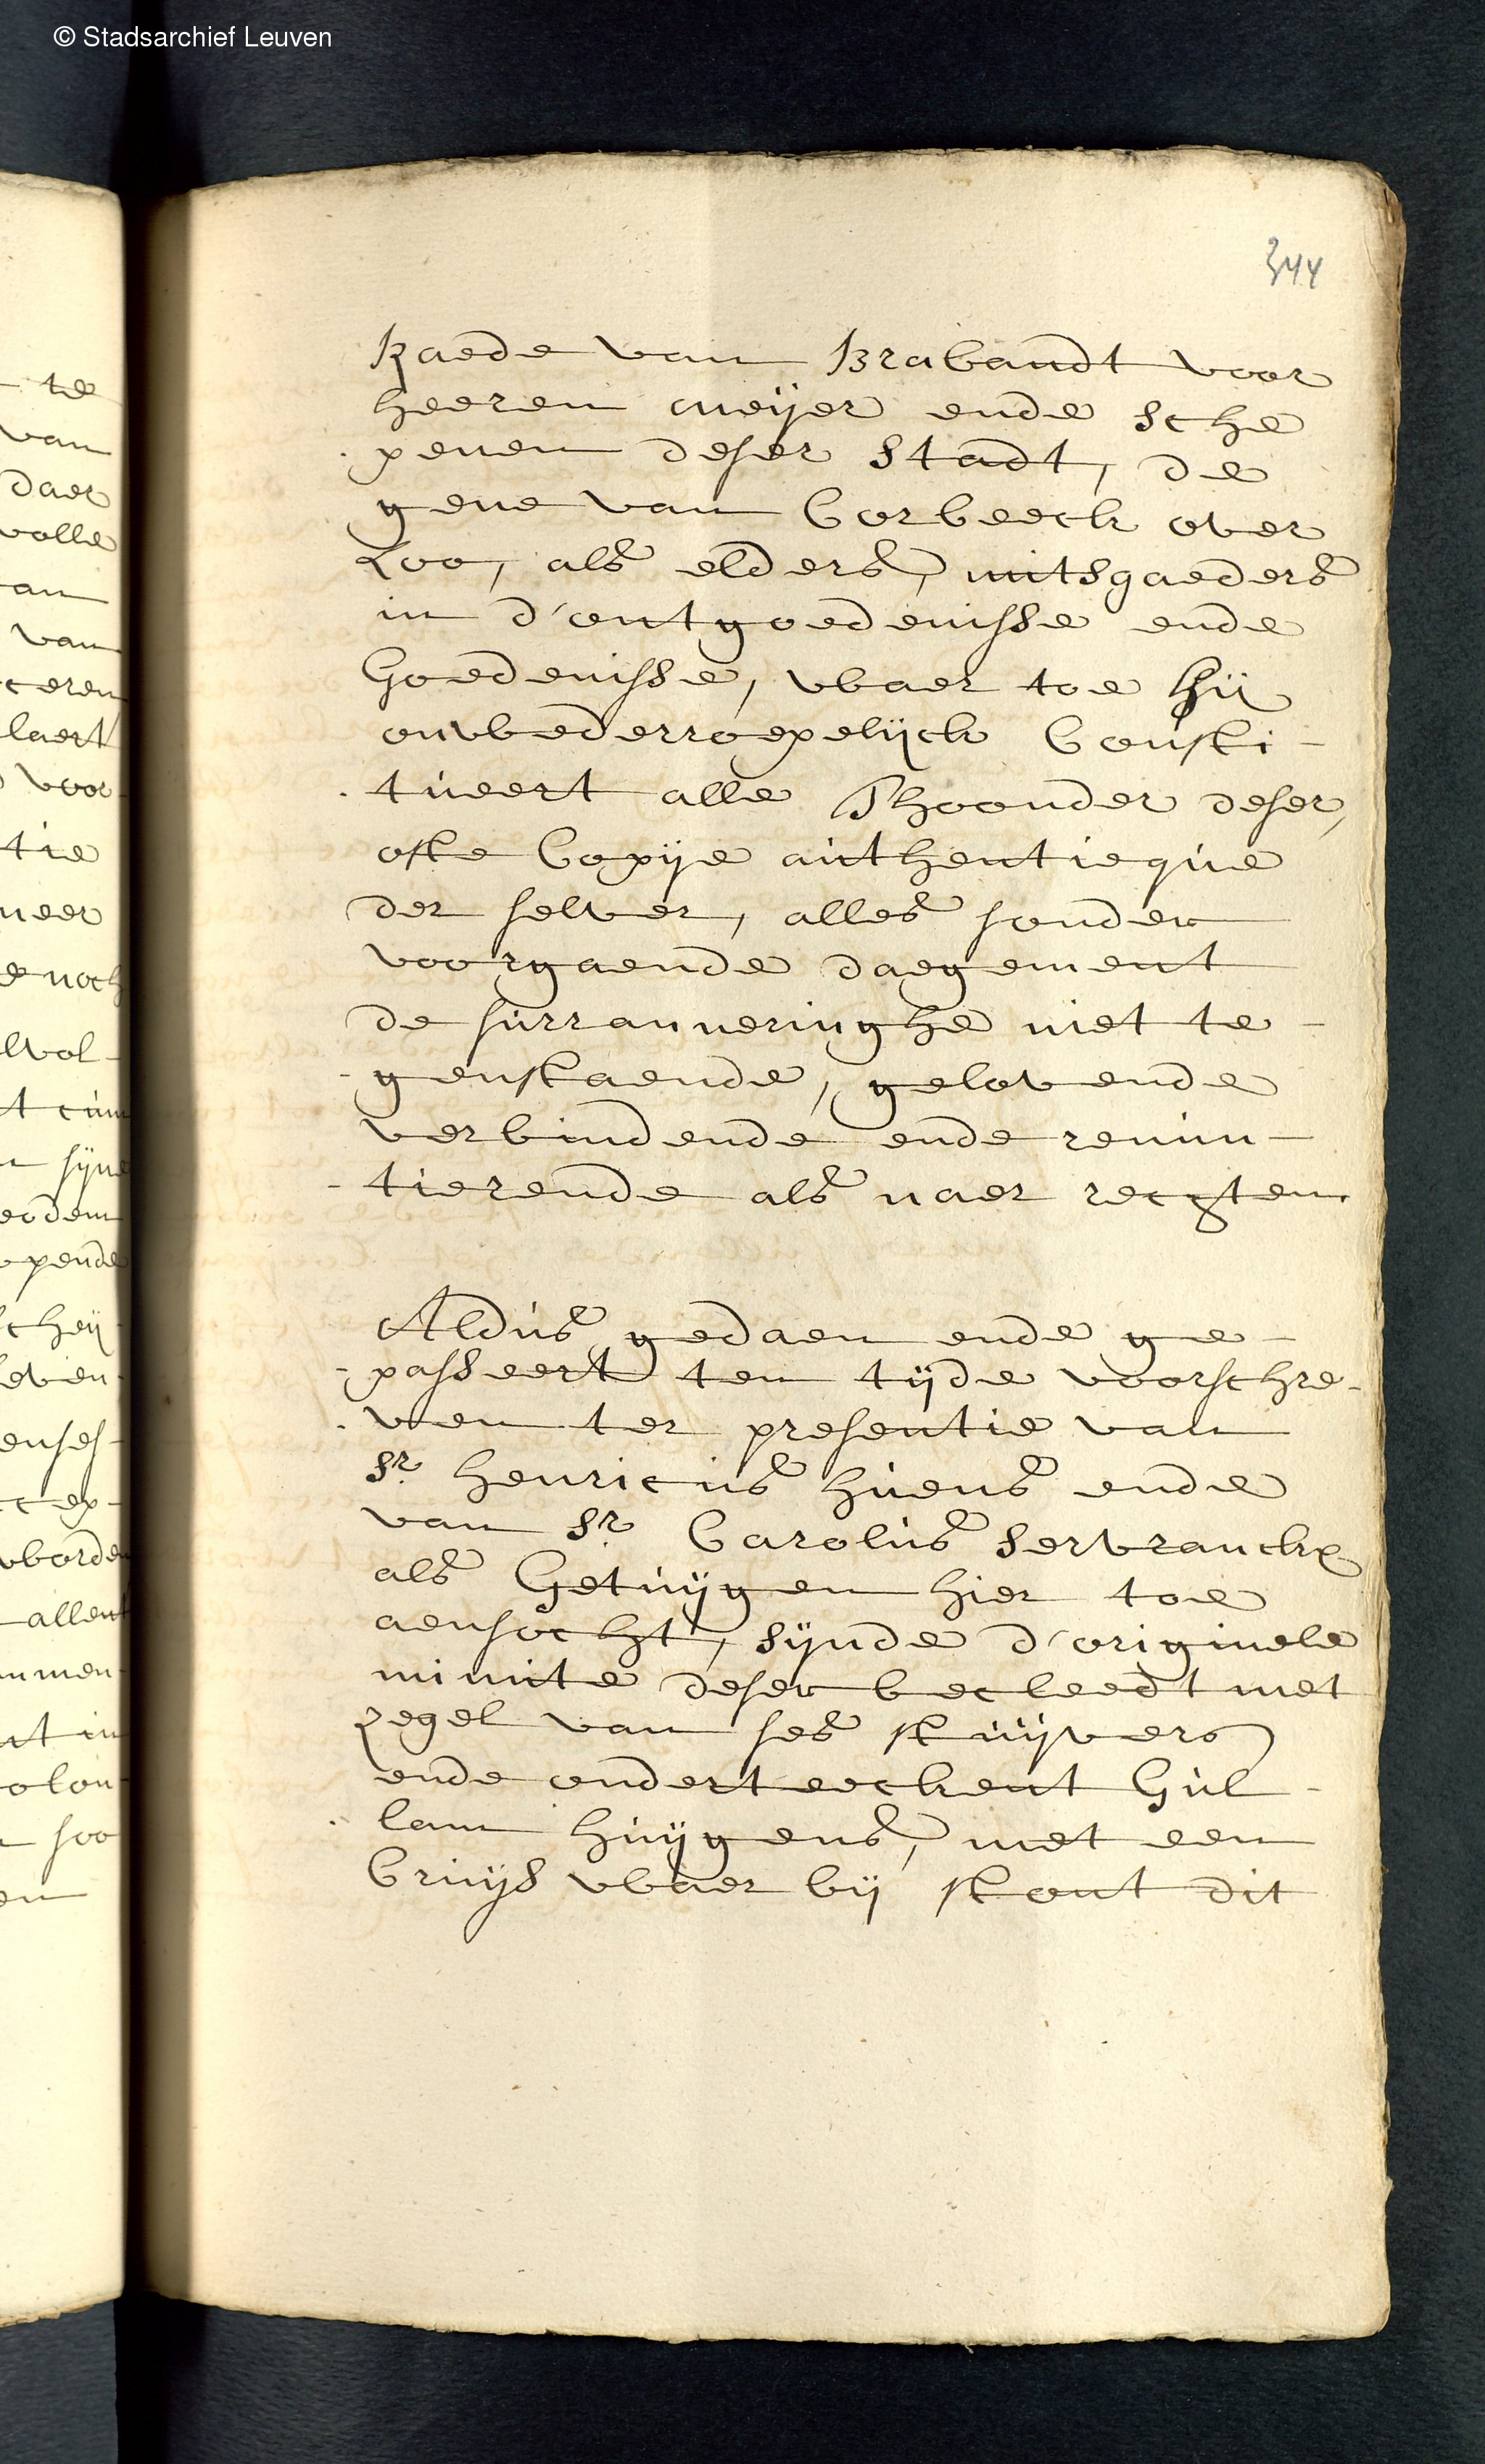 © Stadsarchief Leuven
344
te
van
daer
volle
an
van
ceren
laert
voor
tie
neer
e noch
lvol-
t cum
syne
eodem
pende
schey
leven
enses-
t ex-
worden
allen
mmen
nt in
olon
soo
en
Raede van Brabandt voor
heeren meijer ende sche
penen deser Stadt, de
gene van Corbeeck over
Loo, als elders, mitsgaeders
in d'ontgoedenisse ende
Goedenisse, waer toe hij
onwederroepelijck Consti-
tueert alle Thoonder deser,
ofte Copije authentieque
der selver, alles sonder
voorgaende daegement
de surranneringhe niet te-
genstaende, gelovende
verbindende ende renun-
tierende als naer rechten
Aldus gedaen ende ge-
passeert ten tijde voorschre-
ven ter presentie van
Sr. Henricus Huens ende
van Sr. Carolus Servranckx
als Getuijgen hier toe
aensocht, sijnde d'originele
minute deser becleedt met
zegel van ses stuijvers
ende onderteeckent Guil-
lam Huijgens, met een
Cruijs waer bij stont dit